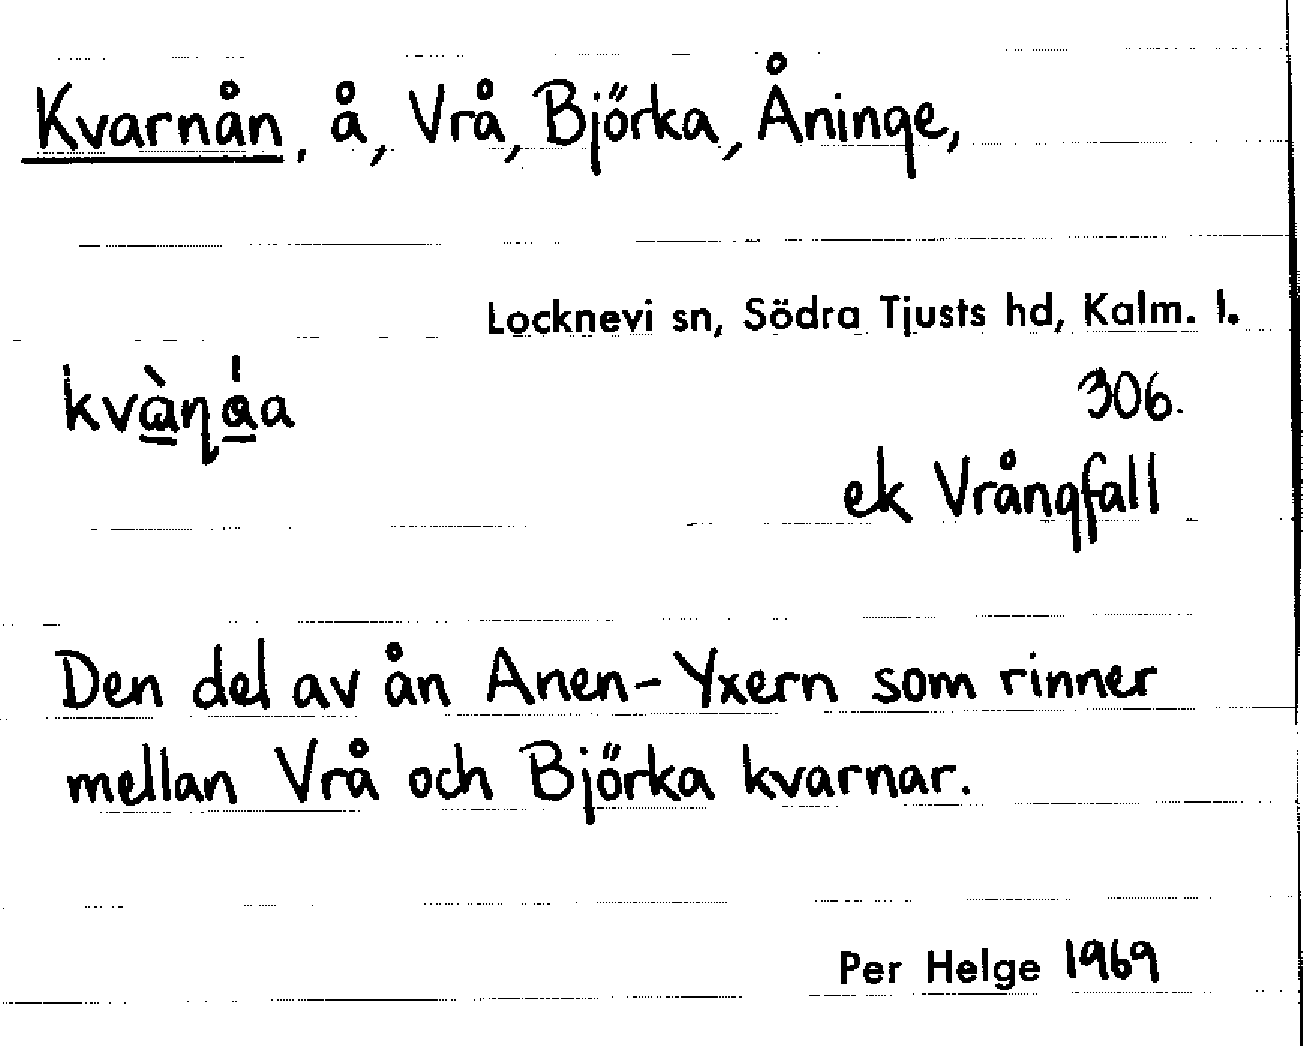 Kvarnån, å, Vrå, Björka, Åninge,
Locknevi sn, Södra Tjusts hd, Kalm. l.
306.
ek Vrångfall
Den del av ån Anen-Yxern som rinner
mellan Vrå och Björka kvarnar.
Per Helge 1969